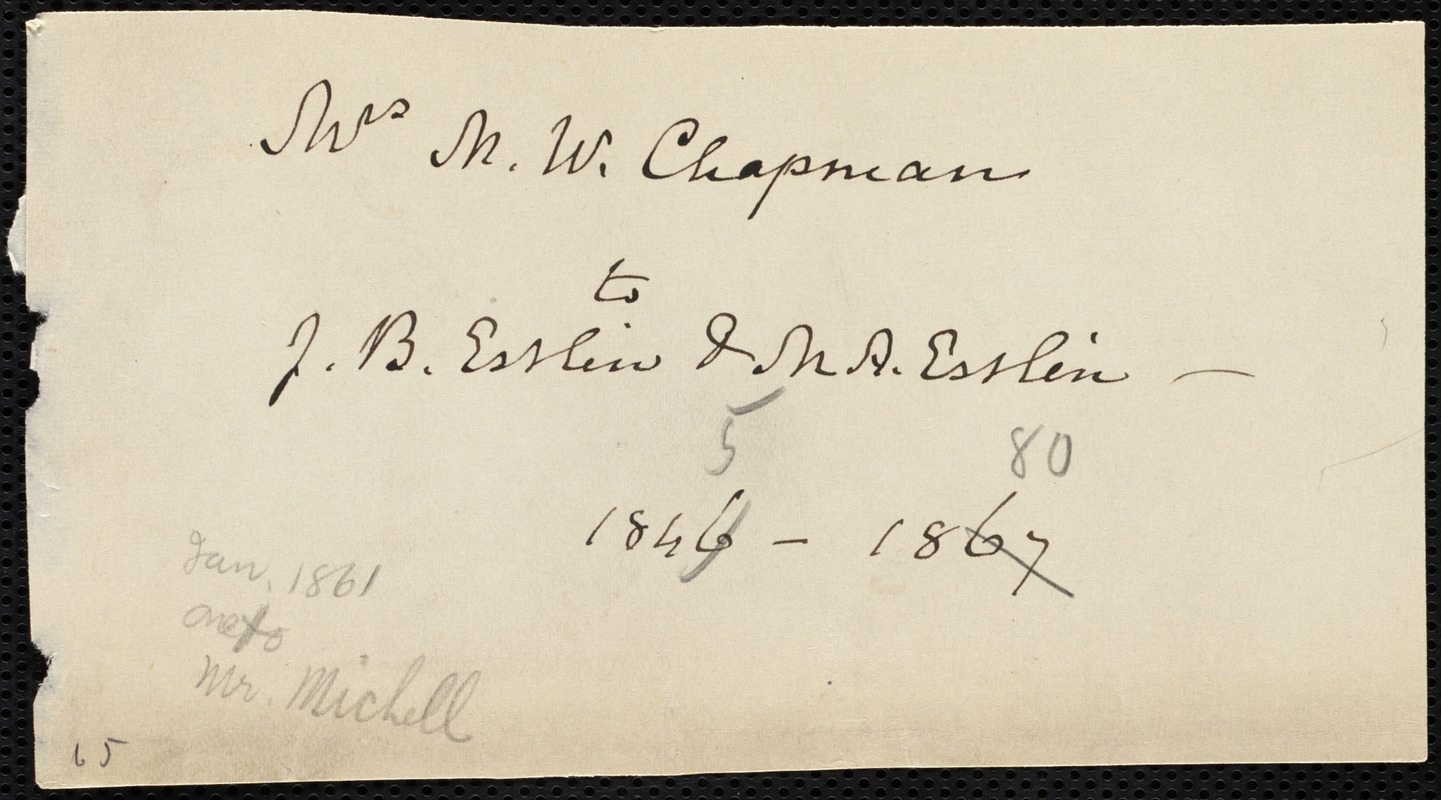 Mrs M. W. Chapman
to
J. B. Estlin & M. A. Estlin —
5 80
1846 - 1867
Jan. 1861
one to
Mr. Michell
65